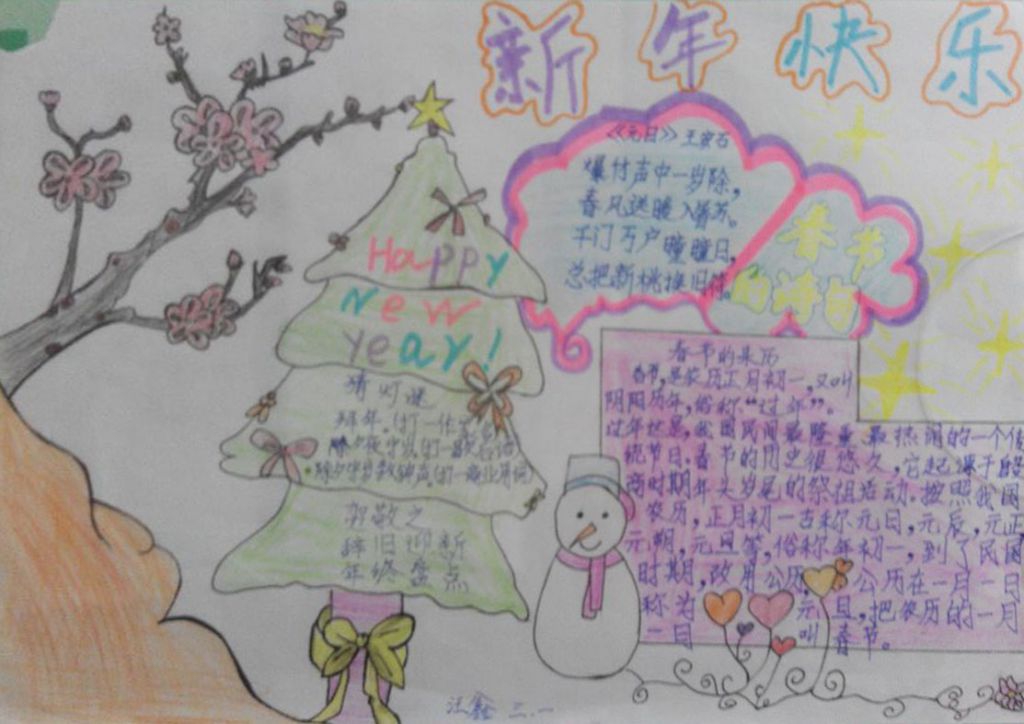 新年快乐
《元日》王安石
爆竹声中一岁除,
春风送暖入屠苏。
千门万户瞳瞳日,
总把新桃换旧符。
春节
的诗句
Happy
New
Year!
猜灯谜
拜年。(打一
除夕夜守岁(打一
除夕守岁数钟声(打一商业用词)
贺敬之
辞旧迎新
年终盘点
春节的来历
春节,是农历正月初一,又叫
阴阳历年,俗称“过年”。
我国民间最隆重、最热闹的一个传
统节日。春节的历史很悠久,它起源于殷
商时期年头岁尾的祭祖活动。按照我国
农历,正月初一古称元日,元辰,元正
元朔,元旦等,俗称年初一,到了民国
时期,改用公历,公历在一月一日
称为元旦,把农历的一月
一日叫春节。
汪鑫 三.一